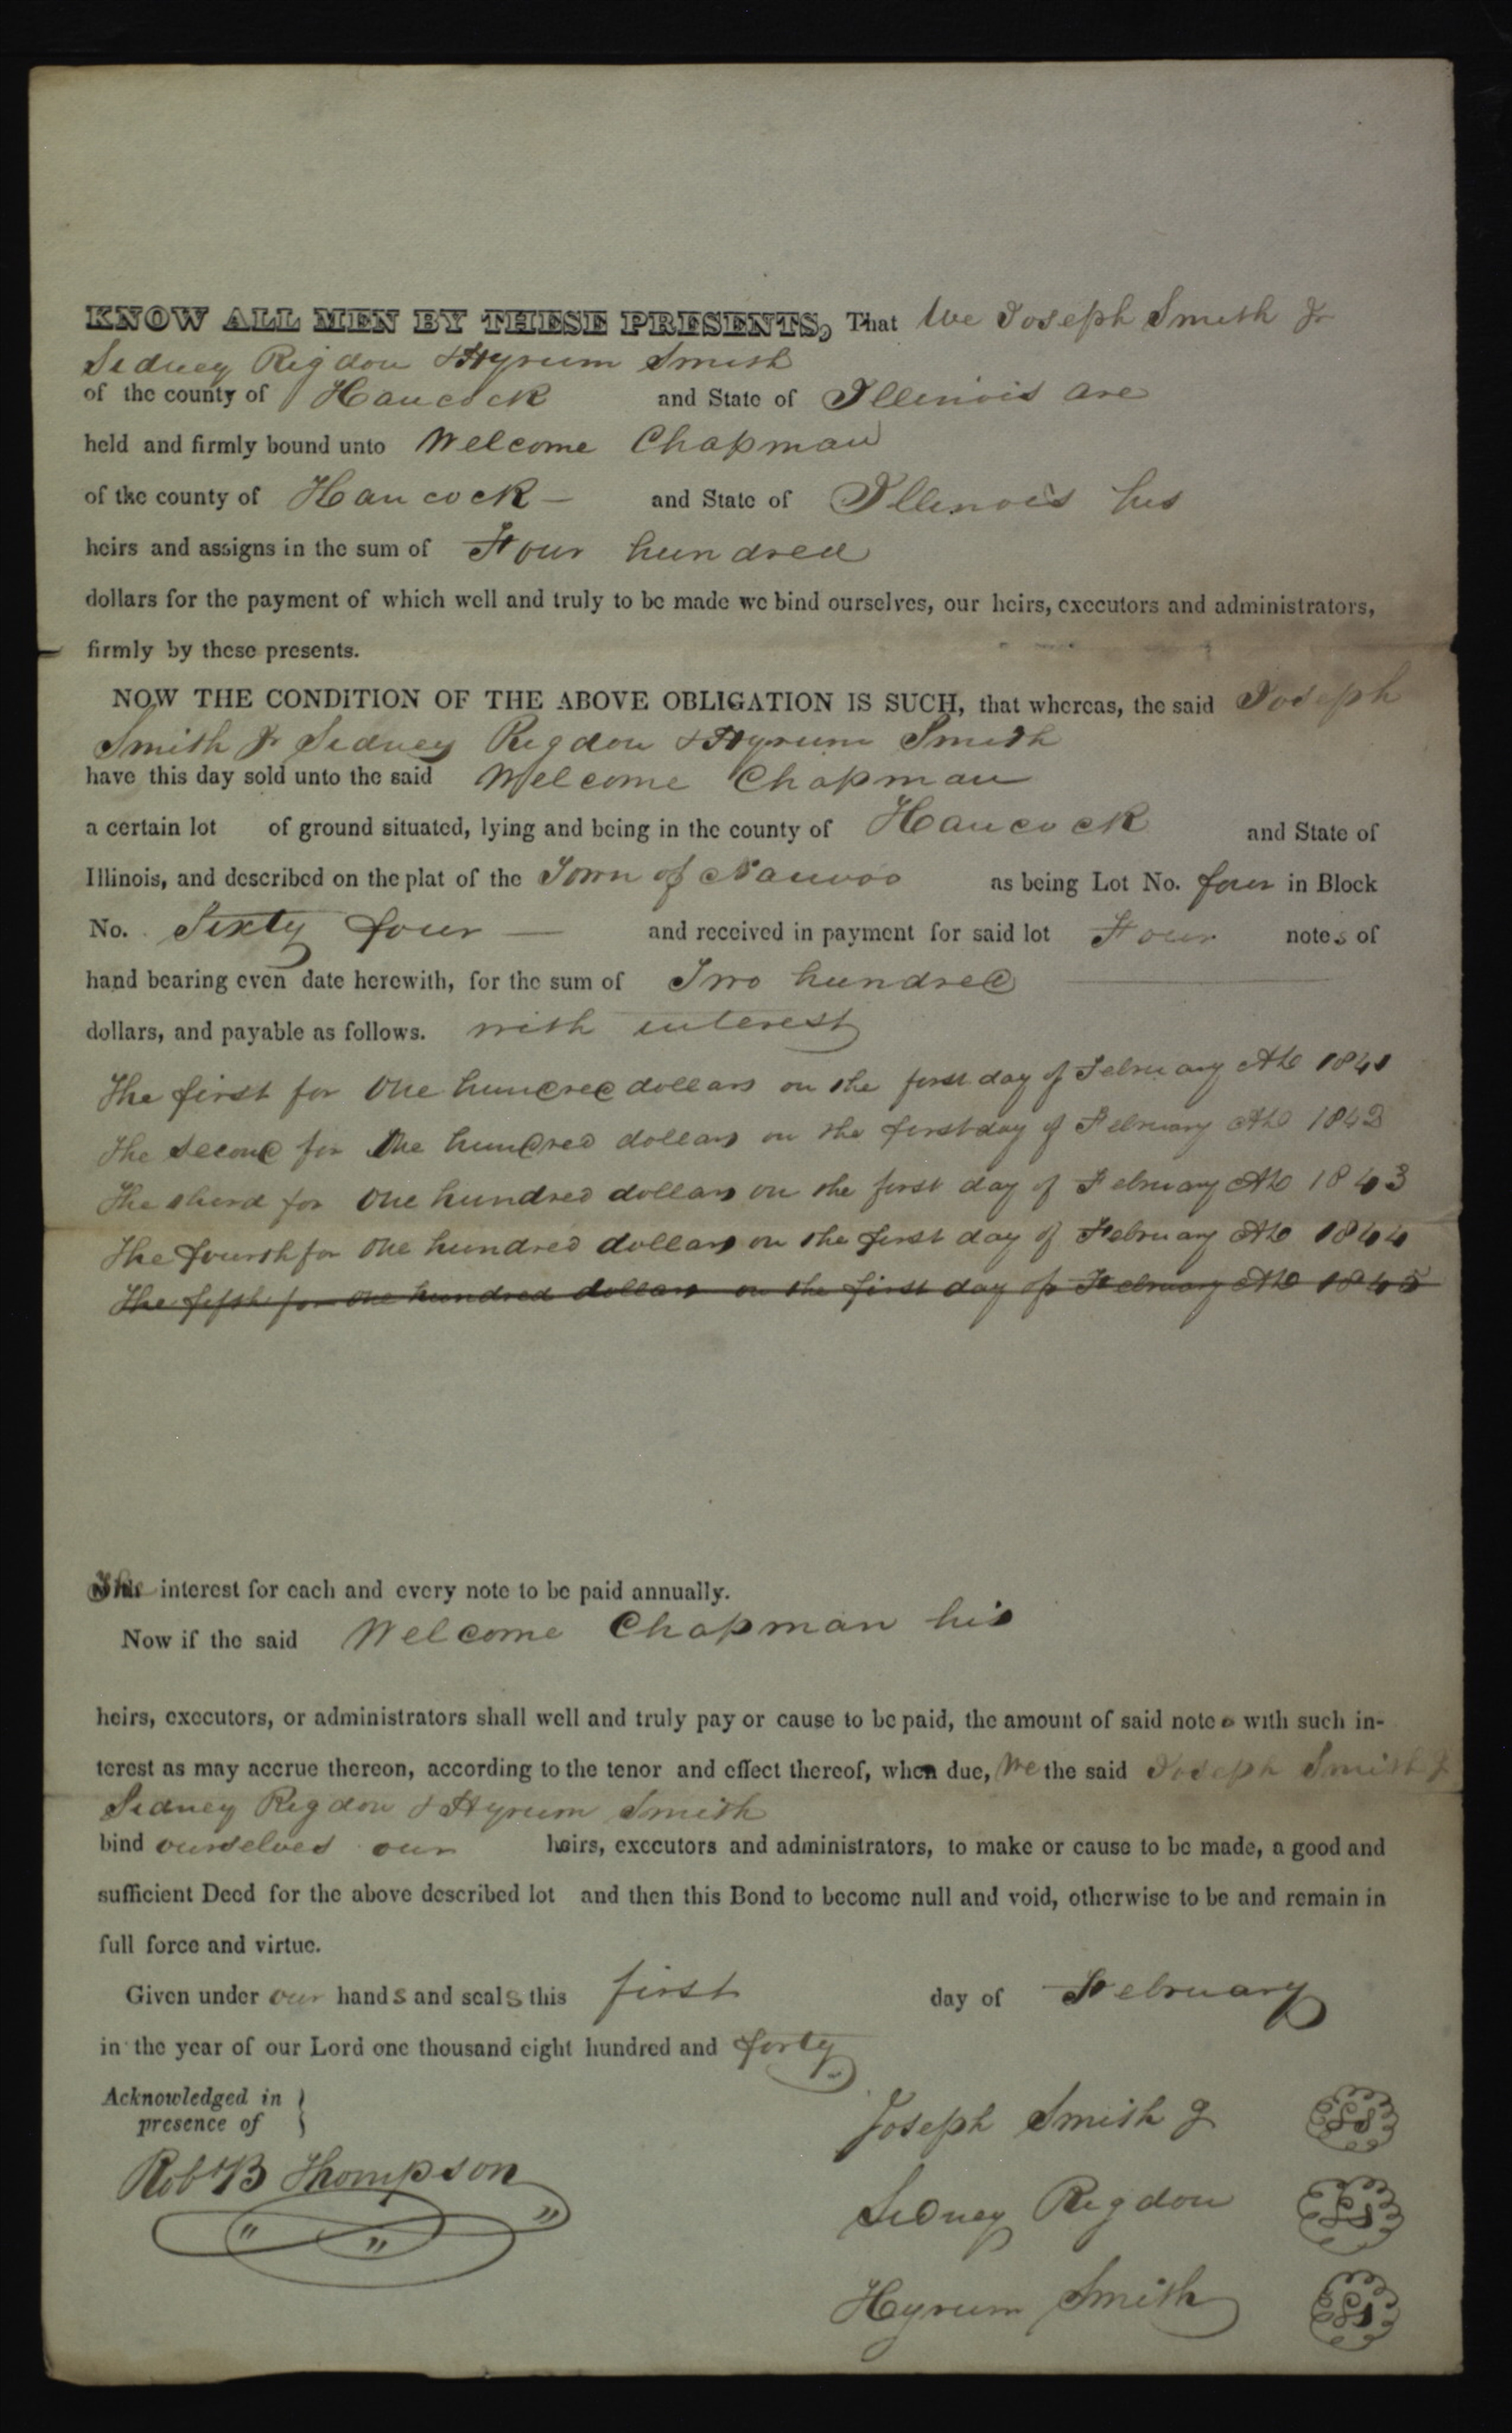 KNOW ALL MEN BY THESE PRESENTS, That We Joseph Smith Jr
Sidney Rigdon & Hyrum Smith
of the county of Hancock and State of Illinois are
held and firmly bound unto Welcome Chapman
of the county of Hancock — and State of Illinois his
heirs and assigns in the sum of Four hundred
dollars for the payment of which well and truly to be made we bind ourselves, our heirs, executors and administrators,
firmly by these presents.
NOW THE CONDITION OF THE ABOVE OBLIGATION IS SUCH, that whereas, the said Joseph
Smith Jr Sidney Rigdon & Hyrum Smith
have this day sold unto the said Welcome Chapman
a certain lot of ground situated, lying and being in the county of Hancock and State of
Illinois, and described on the plat of the Town of Nauvoo as being Lot No. four in Block
No. Sixty four — and received in payment for said lot Four notes of
hand bearing even date herewith, for the sum of Two hundred
dollars, and payable as follows. with interest
The first for One hundred dollars on the first day of February AD 1841
The second for One hundred dollars on the first day of February AD 1842
The third for One hundred dollars on the first day of February AD 1843
The fourth for One hundred dollars on the first day of February AD 1844
The fifth for One hundred dollars on the first day of February AD 1845
The interest for each and every note to be paid annually.
Now if the said Welcome Chapman his
heirs, executors, or administrators shall well and truly pay or cause to be paid, the amount of said notes with such in-
terest as may accrue thereon, according to the tenor and effect thereof, when due, We the said Joseph Smith Jr
Sidney Rigdon & Hyrum Smith
bind ourselves our heirs, executors and administrators, to make or cause to be made, a good and
sufficient Deed for the above described lot and then this Bond to become null and void, otherwise to be and remain in
full force and virtue.
Given under our hands and seals this first day of February
in the year of our Lord one thousand eight hundred and forty
Acknowledged in
presence of
Robt B Thompson
Joseph Smith Jr LS
Sidney Rigdon LS
Hyrum Smith LS